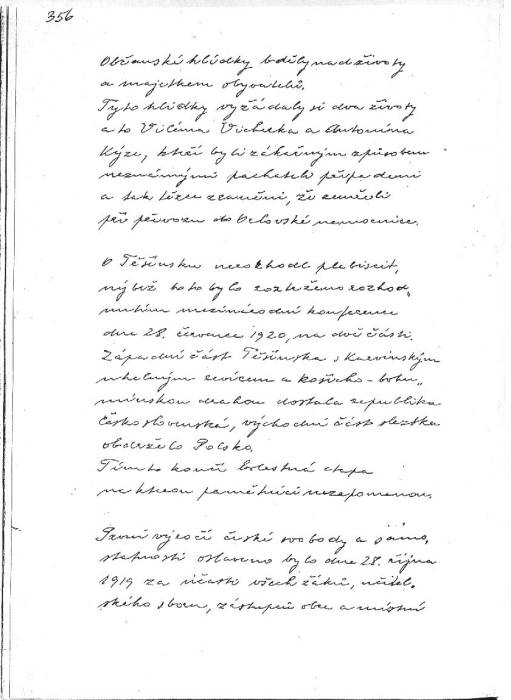 356
Občanské hlídky bděly nad životy
a majetkem obyvatelů.
Tyto hlídky vyžádaly si dva životy
a to Viléma Vicherka a Antonína
Kýze, kteří byli zákeřným způsobem
neznámými pachateli přepadeni
a tak těžce zraněni, že zemřeli
při převozu do Orlovské nemocnice.
O Těšínsku nerozhodl plebiscit,
nýbrž toto bylo rozřešeno rozhod„
nutím mezinárodní konference
dne 28. července 1920, na dvě části.
Západní část Těšínska s Karvinským
uhelným revírem a košicko-bohu„
mínskou drahou dostala republika
Československá, východní část slezska
obdrželo Polsko.
Tímto končí bolestná etapa
na kterou pamětníci nezapomenou.
První výročí české svobody a samo„
statnosti oslaveno bylo dne 28. října
1919 za účasti všech žáků, učitel„
ského sboru, zástupců obce a místní